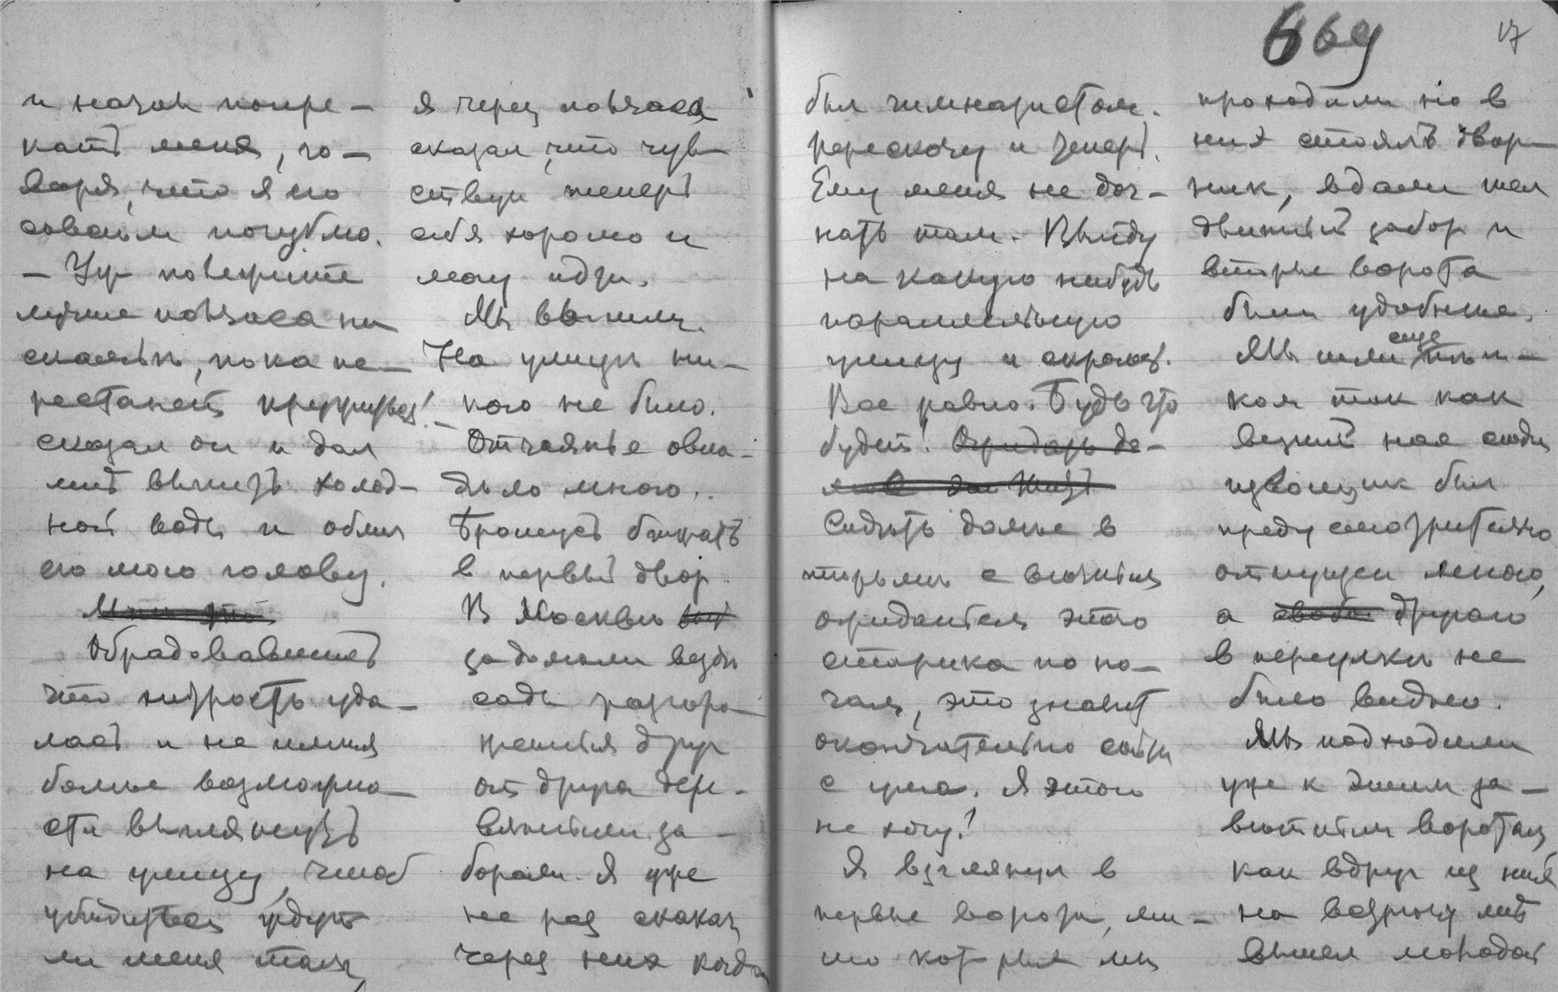 669
17
и начал попре-
кать меня, го-
воря, что я его
совсѣм погублю.
— Уж поверьте
лучше полчаса на
скамьѣ, пока пе-
рестанетъ кружиться! —
сказал он и дал
мнѣ выпить холод-
ной воды и облил
ею мою голову.
Обрадовавшись
что хитрость уда-
лась и не имѣя
болѣе возможно-
сти выглянуть
на улицу, чтоб
убѣдиться ждут
ли меня там,
я через полчаса
сказал, что чув-
ствую теперь
себя хорошо и
могу идти.
Мы вышли.
На улицѣ ни-
кого не было.
Отчаянье овла-
дѣло мною..
Брошусь бѣжать
в первый двор.
В Москвѣ
за домами вездѣ
сады разгоро-
женные друг
от друга дере-
вянными за-
борами. Я уже
не раз скакал
через них когда
был гимназистом.
перескочу и теперь.
Ему меня не дог-
нать там. Выйду
на какую нибудь
параллельную
улицу и скроюсь.
Все равно. Будь что
будет! Ожидать
Сидѣть долѣе в
тюрьмѣ с вѣчным
ожиданьем этого
старика по но-
чам, это значит
окончательно сойти
с ума. Я этого
не хочу!
Я взглянул в
первые ворота, ми-
мо которых мы
проходили но в
них стоялъ двор-
ник, вдали шел
длинный забор и
вторые ворота
были удобнѣе.
Мы шли еще пѣш-
ком так как
везший нас сюда
извощик был
предусмотрительно
отпущен мною,
а другого
в переулкѣ не
было видно.
Мы подходили
уже к этим за-
вѣтным воротам,
как вдруг из них
на встрѣчу мнѣ
вышел молодой